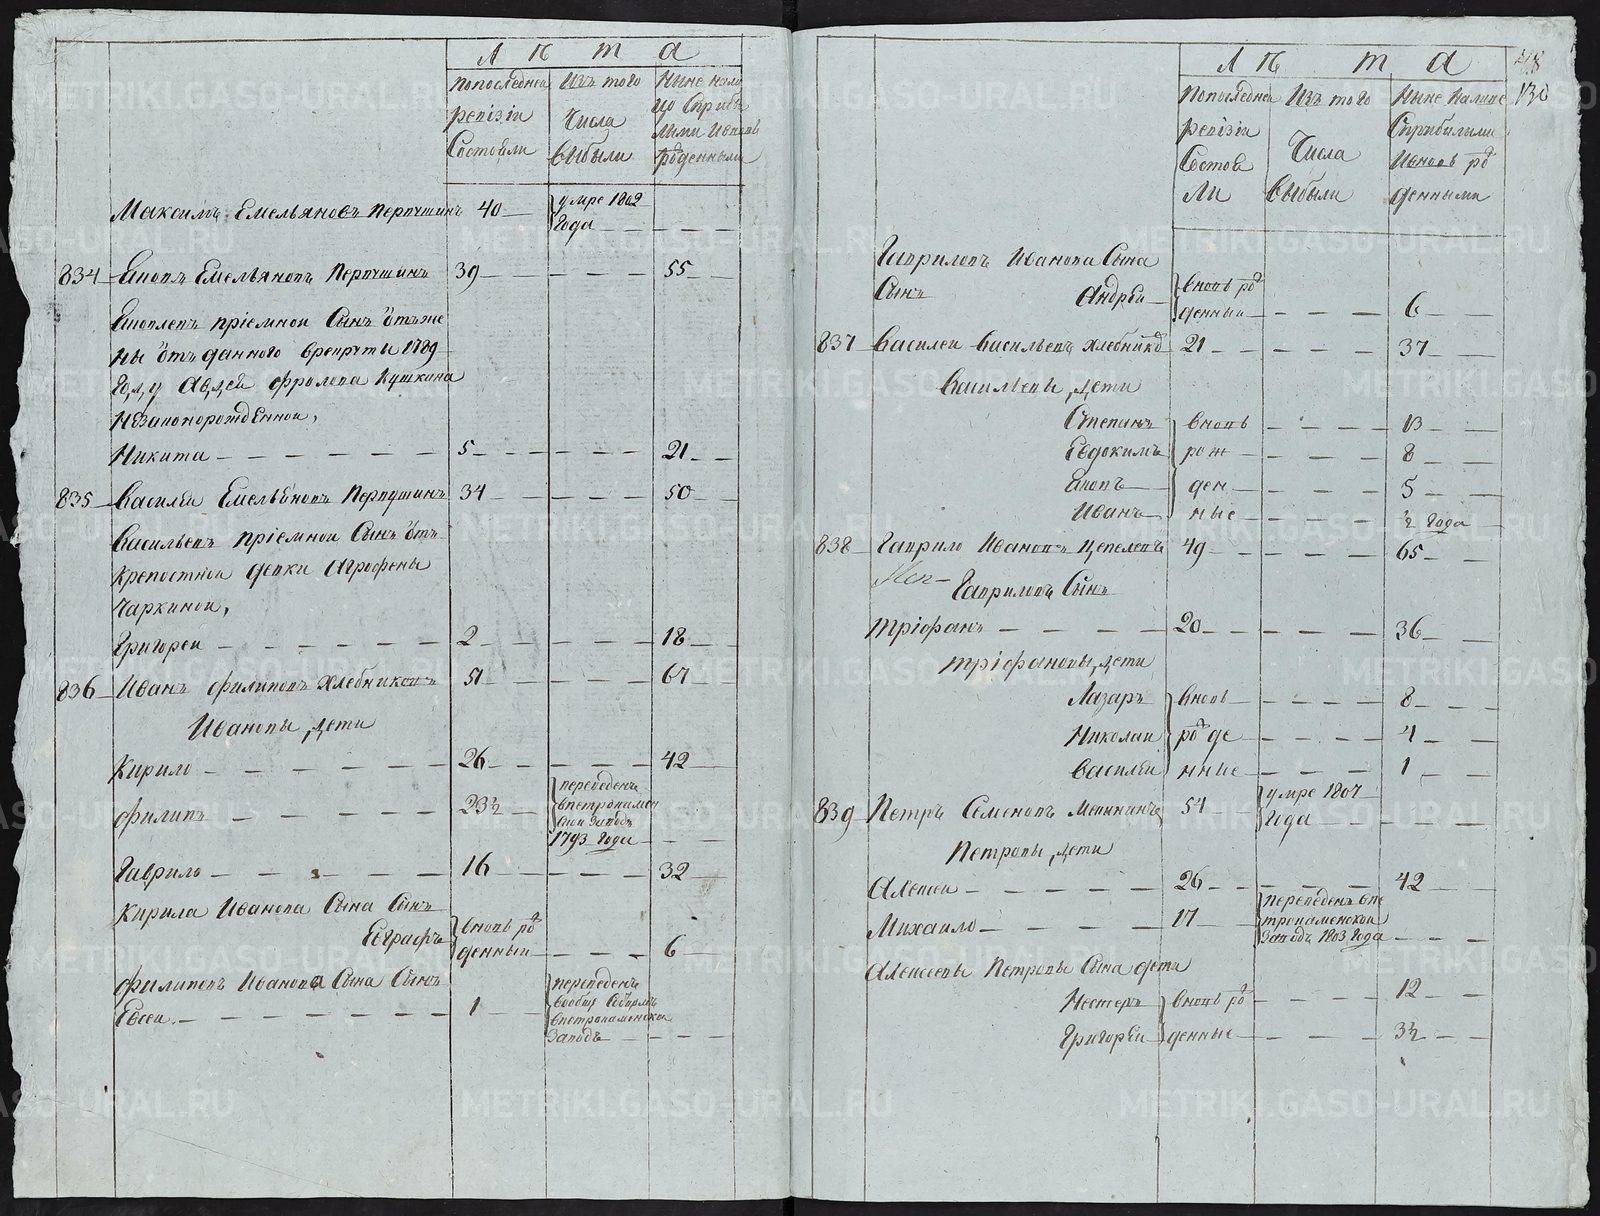 Лѣта
По последней ревизии Состояли
Изъ того Числа выбыли
Ныне на лицо Сприбылыми и вновь рожденными
Максимъ Емельяновъ 40 умре 1802 Года
834 Яковъ Емельяновъ 39 55
Яковлевъ приемной Сынъ отъ же
ны отъ данного в рекруты 1789
Году Авдея Фролова Кушкина
Незаконорожденной,
Никита 5 21
835 Василей Емельяновъ 34 50
Васильевъ приемной Сынъ отъ
Крепостной девки Агрофены
Чаркиной,
Григорей 2 18
836 Иванъ Филиповъ Хлебниковъ 51 67
Ивановы дети
Кирило 26 42
Филипъ 23½ переведенъ в петрокаменской Заводъ 1793 Года
Гаврило 16 32
Кирила Иванова Сына Сынъ
Евграфъ вновь рожденный 6
Филиповъ Иванова Сына Сынъ
Евсей 1 переведенъ вообще в петрокаменской Заводъ
48
130
Лѣта
По последней ревизии Состояли
Изъ того Числа выбыли
Ныне налице Сприбылыми и вновь рожденными
Гавриловъ Иванова Сына
Сынъ Андрей вновь рожденный 6
837 Василей Васильевъ Хлебниковъ 21 37
Васильевы дети
Степанъ вновь 13
Евдокимъ рож 8
Яковъ ден 5
Иванъ ные ½ Года
838 Гаврило Ивановъ 49 65
Гавриловъ Сынъ
Трифанъ 20 36
Трифановы дети
Лазаръ вновь 8
Николай рожде 4
Василей нные 1
839 Петръ Семеновъ 54 умре 1807 Года
Петровы дети
Алексей 26 42
Михаило 17 переведенъ в петрокаменской Заводъ 1803 Года
Алексеевы Петрова Сына дети
Нестеръ вновь ро 12
Григорей жденные 3½
METRIKI.GASO-URAL.RU